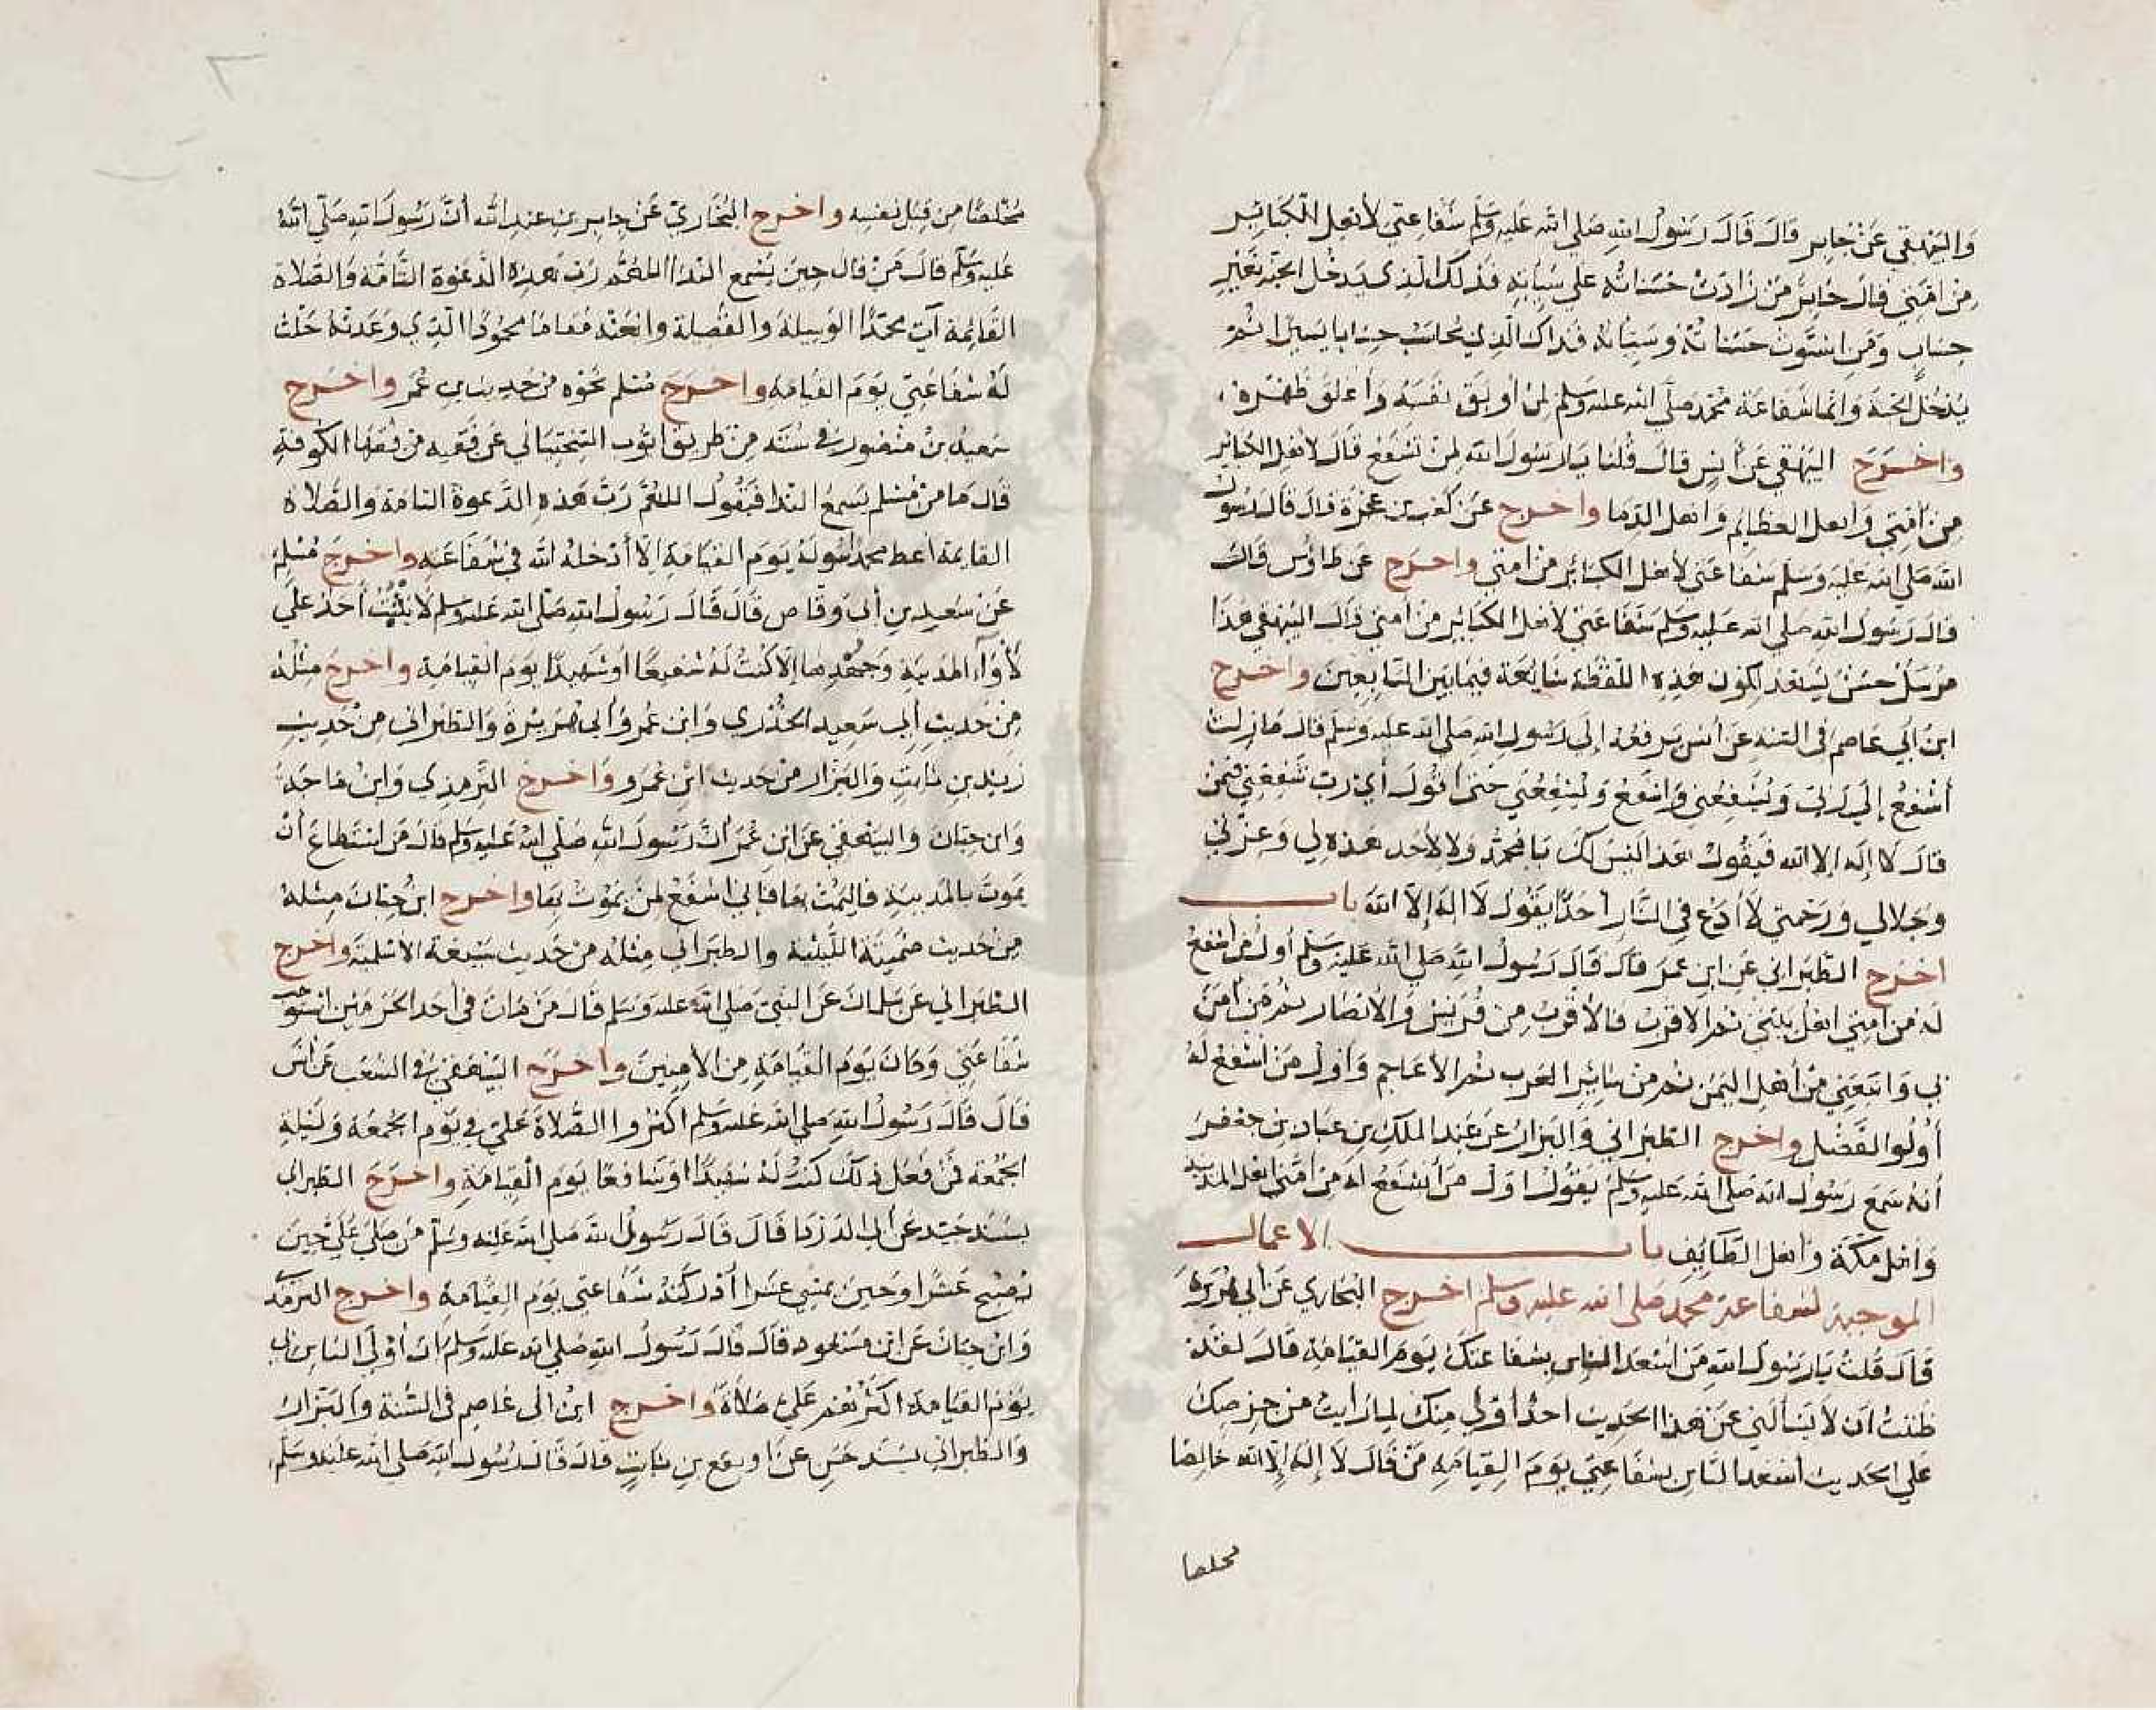 والبيهقي عن جابر قال قال رسول الله صلى الله عليه وسلم شفاعتي لأهل الكبائر
من امتي قال جابر من زادت حسناته على سيأته فذلك الذي يدخل الجنة بغير
حساب ومن استوت حسناته وسيأته فذاك الذي يحاسب حسابا يسيرا ثم
يدخل الجنة وانما شفاعة محمد صلى الله عليه وسلم لمن أوبق نفسه وأغلق ظهره
واخرج البيهقي عن أنس قال قلنا يا رسول الله لمن تشفع قال لاهل الكبائر
من أمتي وأهل العظائم وأهل الدما واخرج عن كعب بن عجرة قال قال رسول
الله صلى الله عليه وسلم شفاعتي لأهل الكبائر من امتي واخرج عن طاؤس قال
قال رسول الله صلى الله عليه وسلم شفاعتي لأهل الكبائر من أمتي قال البيهقي هذا
مرسل حسن يشهد لكون هذه اللفظة شايعة فيما بين التابعين واخرج
ابن أبي عاصم في السنة عن أنس يرفعه إلى رسول الله صلى الله عليه وسلم قال ما زلت
أشفع إلى ربي ويشفعني واشفع ويشفعني حتى أقول أي رب شفعني فيمن
قال لا إله إلا الله فيقول هذا ليس لك يا محمد ولا لأحد هذه لي وعزتي
وجلالي ورحمتي لا أدع في النار أحدا يقول لا اله إلا الله باب
اخرج الطبراني عن ابن عمر قال قال رسول الله صلى الله عليه وسلم أول من اشفع
له من امتي اهل بيتي ثم الاقرب فالأقرب من قريش والأنصار ثم من أمن
بي واتبعني من أهل اليمن ثم من سائر العرب ثم الأعاجم وأول من أشفع له
أولوا الفضل واخرج الطبراني والبزار عن عبد الملك بن عباد بن جعفر
أنه سمع رسول الله صلى الله عليه وسلم يقول اول من أشفع له من أمتي أهل المدينة
وأهل مكة وأهل الطائف باب الاعمال
الموجبة لشفاعة محمد صلى الله عليه وسلم اخرج البخاري عن أبي هريرة
قال قلت يا رسول الله من أسعد الناس بشفاعتك يوم القيامة قال لقد
ظننت ان لا يسألني عن هذا الحديث احد أولى منك لما رأيت من حرصك
على الحديث أسعد الناس بشفاعتي يوم القيامة من قال لا إله إلا الله خالصا
مخلصا
مخلصا من قبل نفسه واخرج البخاري عن جابر بن عبد الله أن رسول الله صلى الله
عليه وسلم قال من قال حين يسمع الندا اللهم رب هذه الدعوة التامة والصلاة
القائمة آت محمدا الوسيلة والفضيلة وابعثه مقاما محمودا الذي وعدته حلت
له شفاعتي يوم القيامة واخرج مسلم نحوه من حديث ابن عمر واخرج
سعيد بن منصور في سننه من طريق ايوب السختياني عن فقيه من فقها الكوفة
قال ما من مسلم يسمع الندا فيقول اللهم رب هذه الدعوة التامة والصلاة
القايمة اعط محمدا سوله يوم القيامة إلا أدخله الله في شفاعته واخرج مسلم
عن سعيد بن أبي وقاص قال قال رسول الله صلى الله عليه وسلم لا يثبت أحد على
لأوآء المدينة وجهدها إلا كنت له شفيعا أو شهيدا يوم القيامة واخرج مثله
من حديث أبي سعيد الخدري وابن عمر وأبي هريرة والطبراني من حديث
زيد بن ثابت والبزار من حديث ابن عمرو واخرج الترمذي وابن ماجة
وابن حبان والبيهقي عن ابن عمر أن رسول الله صلى الله عليه وسلم قال من استطاع أن
يموت بالمدينة فاليمت بها فإني اشفع لمن يموت بها واخرج ابن حبان مثله
من حديث صميتة الليثية والطبراني مثله من حديث سبيعة الأسلمية واخرج
الطبراني عن سلمان عن النبي صلى الله عليه وسلم قال من مات في أحد الحرمين استوجب
شفاعتي وكان يوم القيامة من الأمنين واخرج البيهقي في الشعب عن أنس
قال قال رسول الله صلى الله عليه وسلم اكثروا الصلاة علي في يوم الجمعة وليلة
الجمعة فمن فعل ذلك كنت له شهيدا أو شافعا يوم القيامة واخرج الطبراني
بسند جيد عن أبي الدردا قال قال رسول الله صلى الله عليه وسلم من صلى علي حين
يصبح عشرا وحين يمسي عشرا أدركته شفاعتي يوم القيامة واخرج الترمذي
وابن حبان عن ابن مسعود قال قال رسول الله صلى الله عليه وسلم ان أولى الناس بي
يوم القيامة اكثرهم علي صلاة واخرج ابن ابي عاصم في السنة والبزار
والطبراني بسند حسن عن رويفع بن ثابت قال قال رسول الله صلى الله عليه وسلم